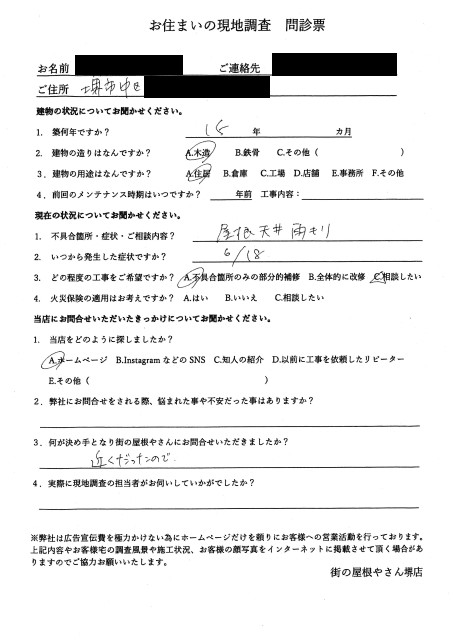 お住まいの現地調査 問診票
お名前 ご連絡先
ご住所 堺市中区
建物の状況についてお聞かせください。
1. 築何年ですか? 18 年 カ月
2. 建物の造りはなんですか? A.木造 B.鉄骨 C.その他( )
3. 建物の用途はなんですか? A.住居 B.倉庫 C.工場 D.店舗 E.事務所 F.その他
4. 前回のメンテナンス時期はいつですか? 年前 工事内容:
現在の状況についてお聞かせください。
1. 不具合箇所・症状・ご相談内容? 屋根天井雨モリ
2. いつから発生した症状ですか? 6/18
3. どの程度の工事をご希望ですか? A.不具合箇所のみの部分的補修 B.全体的に改修 C.相談したい
4. 火災保険の適用はお考えですか? A.はい B.いいえ C.相談したい
当店にお問合せいただいたきっかけについてお聞かせください。
1. 当店をどのように探しましたか?
A.ホームページ B.Instagram などの SNS C.知人の紹介 D.以前に工事を依頼したリピーター
E.その他( )
2. 弊社にお問合せをされる際、悩まれた事や不安だった事はありますか?
3. 何が決め手となり街の屋根やさんにお問合せいただきましたか?
近くだったので.
4. 実際に現地調査の担当者がお伺いしていかがでしたか?
※弊社は広告宣伝費を極力かけない為にホームページだけを頼りにお客様への営業活動を行っております。
上記内容やお客様宅の調査風景や施工状況、お客様の顔写真をインターネットに掲載させて頂く場合があ
りますのでご協力お願いいたします。
街の屋根やさん堺店